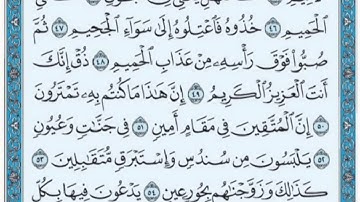 ٱلْحَمِيمِ ٤٦ خُذُوهُ فَٱعْتِلُوهُ إِلَىٰ سَوَآءِ ٱلْجَحِيمِ ٤٧ ثُمَّ
صُبُّوا۟ فَوْقَ رَأْسِهِۦ مِنْ عَذَابِ ٱلْحَمِيمِ ٤٨ ذُقْ إِنَّكَ
أَنتَ ٱلْعَزِيزُ ٱلْكَرِيمُ ٤٩ إِنَّ هَٰذَا مَا كُنتُم بِهِۦ تَمْتَرُونَ
٥٠ إِنَّ ٱلْمُتَّقِينَ فِى مَقَامٍ أَمِينٍ ٥١ فِى جَنَّٰتٍ وَعُيُونٍ
٥٢ يَلْبَسُونَ مِن سُندُسٍ وَإِسْتَبْرَقٍ مُّتَقَٰبِلِينَ ٥٣
كَذَٰلِكَ وَزَوَّجْنَٰهُم بِحُورٍ عِينٍ ٥٤ يَدْعُونَ فِيهَا بِكُلِّ